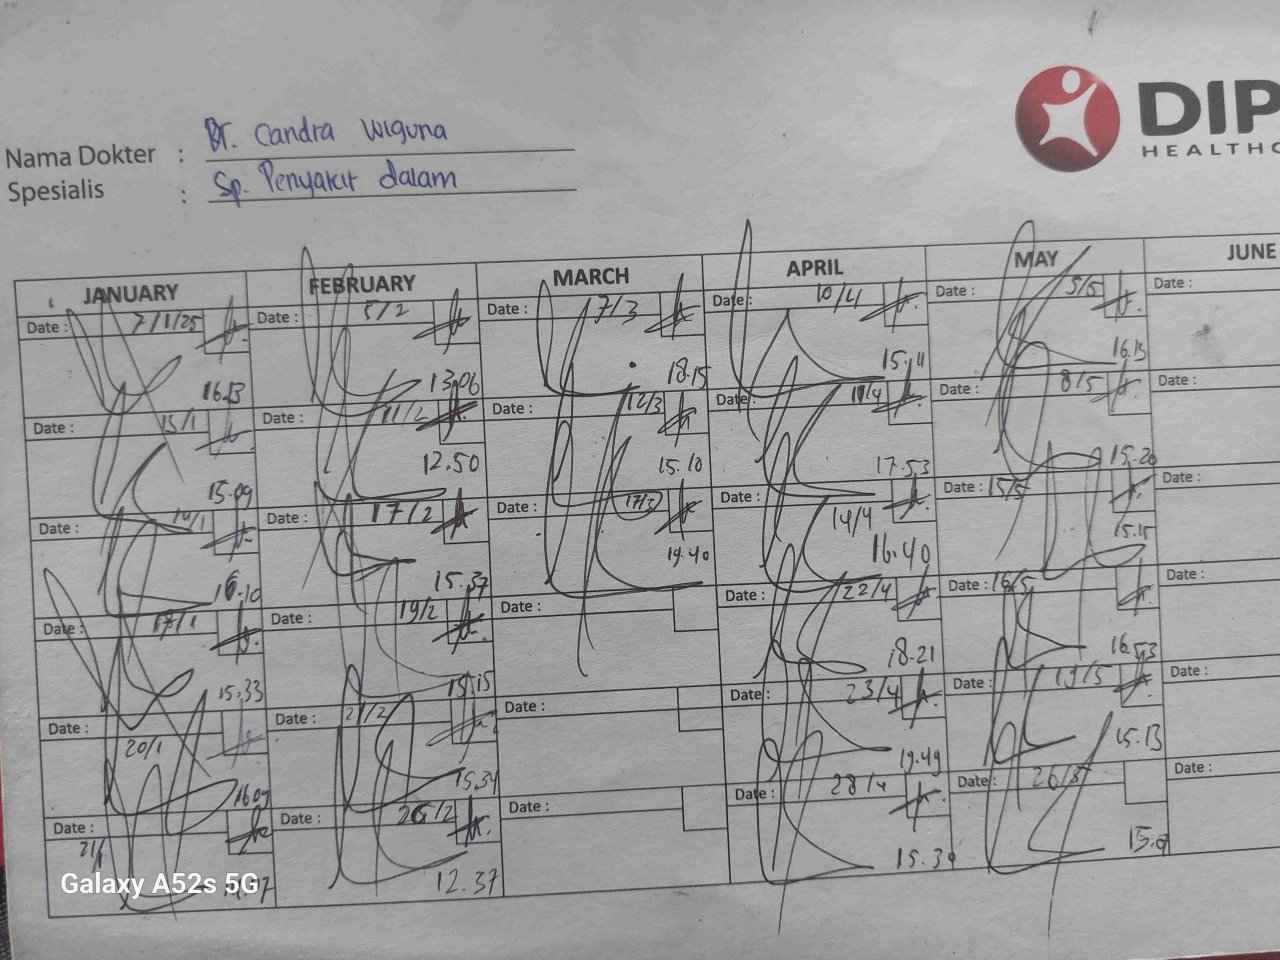 DIP
HEALTHC
Nama Dokter : Dr. Candra Wiguna
Spesialis : Sp. Penyakit dalam
JANUARY FEBRUARY MARCH APRIL MAY JUNE
Date : 7/1/25 Date : 5/2 Date : 7/3 Date : 10/4 Date : 5/5 Date :
16.13 13.06 18.15 15.11 16.15
Date : 13/1 Date : 11/2 Date : 12/3 Date : 11/4 Date : 8/5 Date :
15.09 12.50 15.10 17.53 15.20
Date : 14/1 Date : 17/2 Date : 17/3 Date : 14/4 Date : 15/5
16.10 15.37 19.40 16.40 15.15
Date : 17/1 Date : 19/2 Date : Date : 22/4 Date : 16/5 Date :
15.33 15.15 18.21 16.53
Date : 20/1 Date : 21/2 Date : Date : 23/4 Date : 19/5 Date :
16.09 15.34 19.49 15.13
Date : 21/1 Date : 26/2 Date : Date : 28/4 Date : 26/5 Date :
12.37 15.39
Galaxy A52s 5G